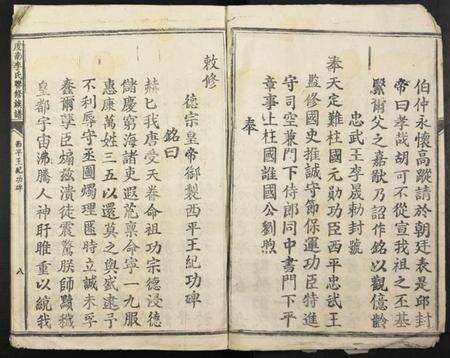 伯仲永懷高蹤請於朝廷表是邱封
帝曰孝哉胡可不從宣我祖之丕基
繄爾父之嘉猷乃詔作銘以觀億齡
忠武王李晟勅封號
奉天定難柱國元勛功臣西平忠武王
監修國史推誠守節保運功臣特進
守司空兼門下侍郎同中書門下平
章事上柱國譙國公劉煦
奉
敕修
德宗皇帝御製西平王紀功碑
銘曰
赫匕我唐受天眷命祖功宗德浸德
儲慶窮海諸吏遐荒稟命寧一九服
惠康萬姓三五以還莫之與盛逮予
不利辱守丕圖燭理匪時立誠未孚
蠢爾孽臣煽茲潰徒震驚朕師黷穢
皇都宇宙沸騰人神盱睢重以統我
虔南李氏聯修族譜
西平王紀功碑
八